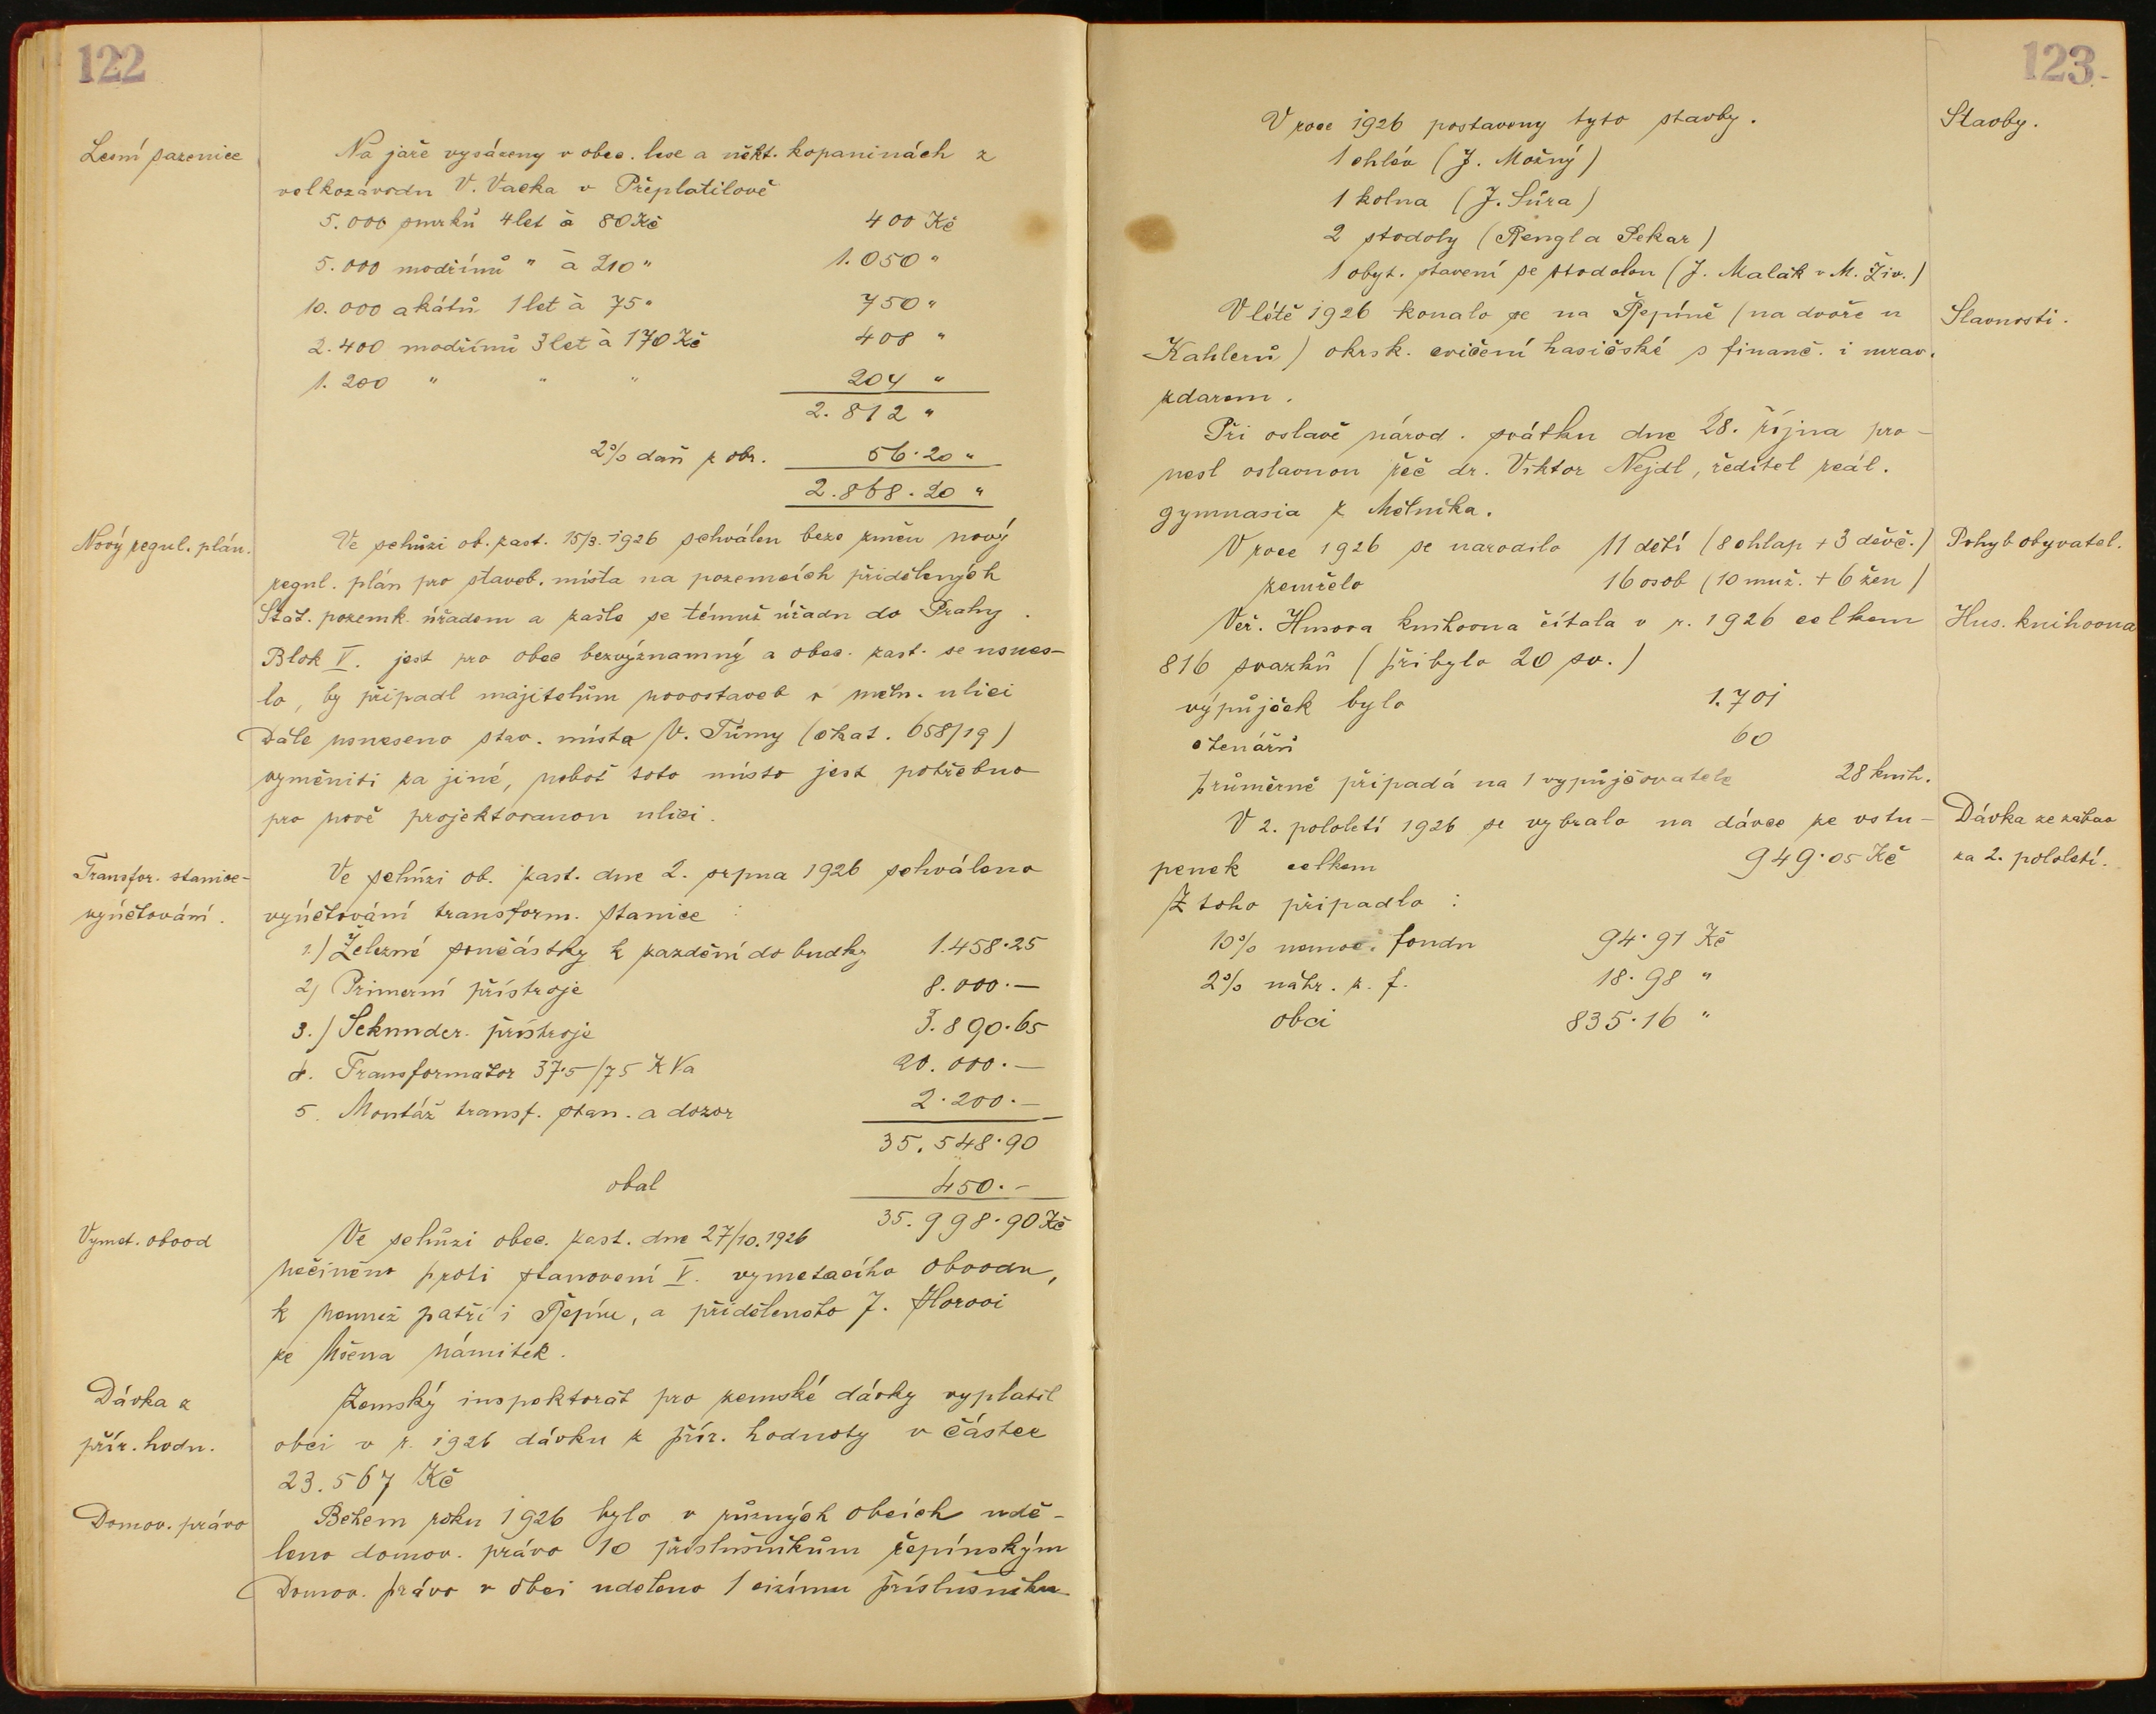 122
Lesní sazenice
Na jaře vysázeny v obec. lese a někt. kopaninách z
velkozávodu V. Vacka v Přeplatilově
5.000 smrků 4let à 80 Kč 400 Kč
5.000 modřínů " à 210 " 1.050 "
10.000 akátů 1let à 75 " 750 "
2.400 modřínů 3let à 170 Kč 408 "
1.200 " " " 204 "
2.812 "
2% daň z obr. 56·20 "
2.868·20 "
Nový regul. plán.
Ve schůzi ob. zast. 15/3. 1926 schválen beze změn nový
regul. plán pro staveb. místa na pozemcích přidělených
Stát. pozemk. úřadem a zašle se témuž úřadu do Prahy.
Blok V. jest pro obec bezvýznamný a obec. zast. se usnes-
lo, by připadl majitelům novostaveb v měln. ulici
Dále usneseno stav. místa V. Tůmy (čkat. 658/19)
vyměniti za jiné, neboť toto místo jest potřebno
pro nově projektovanou ulici.
Transfor. stanice-
vyúčtování.
Ve schůzi ob. zast. dne 2. srpna 1926 schváleno
vyúčtování transform. stanice :
1.) Železné součástky k zazdění do budky 1.458·25
2) Primerní přístroje 8.000.—
3.) Sekunder. přístroje 3.890·65
4. Transformator 37·5/75 KVa 20.000.—
5. Montáž transf. stan. a dozor 2·200.—
35.548·90
obal 450.-
35.998·90 Kč
Vymet. obvod
Ve schůzi obec. zast. dne 27/10. 1926
nečiněno proti stanovení V. vymetacího obvodu,
k němuž patří i Řepín, a přidělenoto J. Horovi
ze Mšena námitek.
Dávka z
přír. hodn.
Zemský inspektorát pro zemské dávky vyplatil
obci v r. 1926 dávku z přír. hodnoty v částce
23.567 Kč
Domov. právo
Během roku 1926 bylo v různých obcích udě-
leno domov. právo 10 příslušníkům řepínským
Domov. právo v obci uděleno 1 cizímu příslušníku
123.
V roce 1926 postaveny tyto stavby.
Stavby.
1 chlév (J. Možný)
1 kolna (J. Šúra)
2 stodoly (Rengl a Pekar)
1 obyt. stavení se stodolou (J. Malák v M. Živ.)
V létě 1926 konalo se na Řepíně (na dvoře u
Slavnosti.
Kahlerů) okrsk. cvičení hasičské s finanč. i mrav.
zdarem.
Při oslavě národ. svátku dne 28. října pro-
nesl oslavnou řeč dr. Viktor Nejdl, ředitel reál.
gymnasia z Mělníka.
V roce 1926 se narodilo 11 dětí (8 chlap + 3 děvč.)
Pohyb obyvatel.
zemřelo 16 osob (10 muž. + 6 žen)
Veř. Husova knihovna čítala v r. 1926 celkem
Hus. knihovna
816 svazků (přibylo 20 sv.)
výpůjček bylo 1.701
čtenářů 60
průměrně připadá na 1 vypůjčovatele 28 knih.
V 2. pololetí 1926 se vybralo na dávce ze vstu-
Dávka ze zábav
penek celkem 949·05 Kč
za 2. pololetí.
Z toho připadlo :
10% nemoc. fondu 94·91 Kč
2% náhr. z. f. 18·98 "
obci 835·16 "